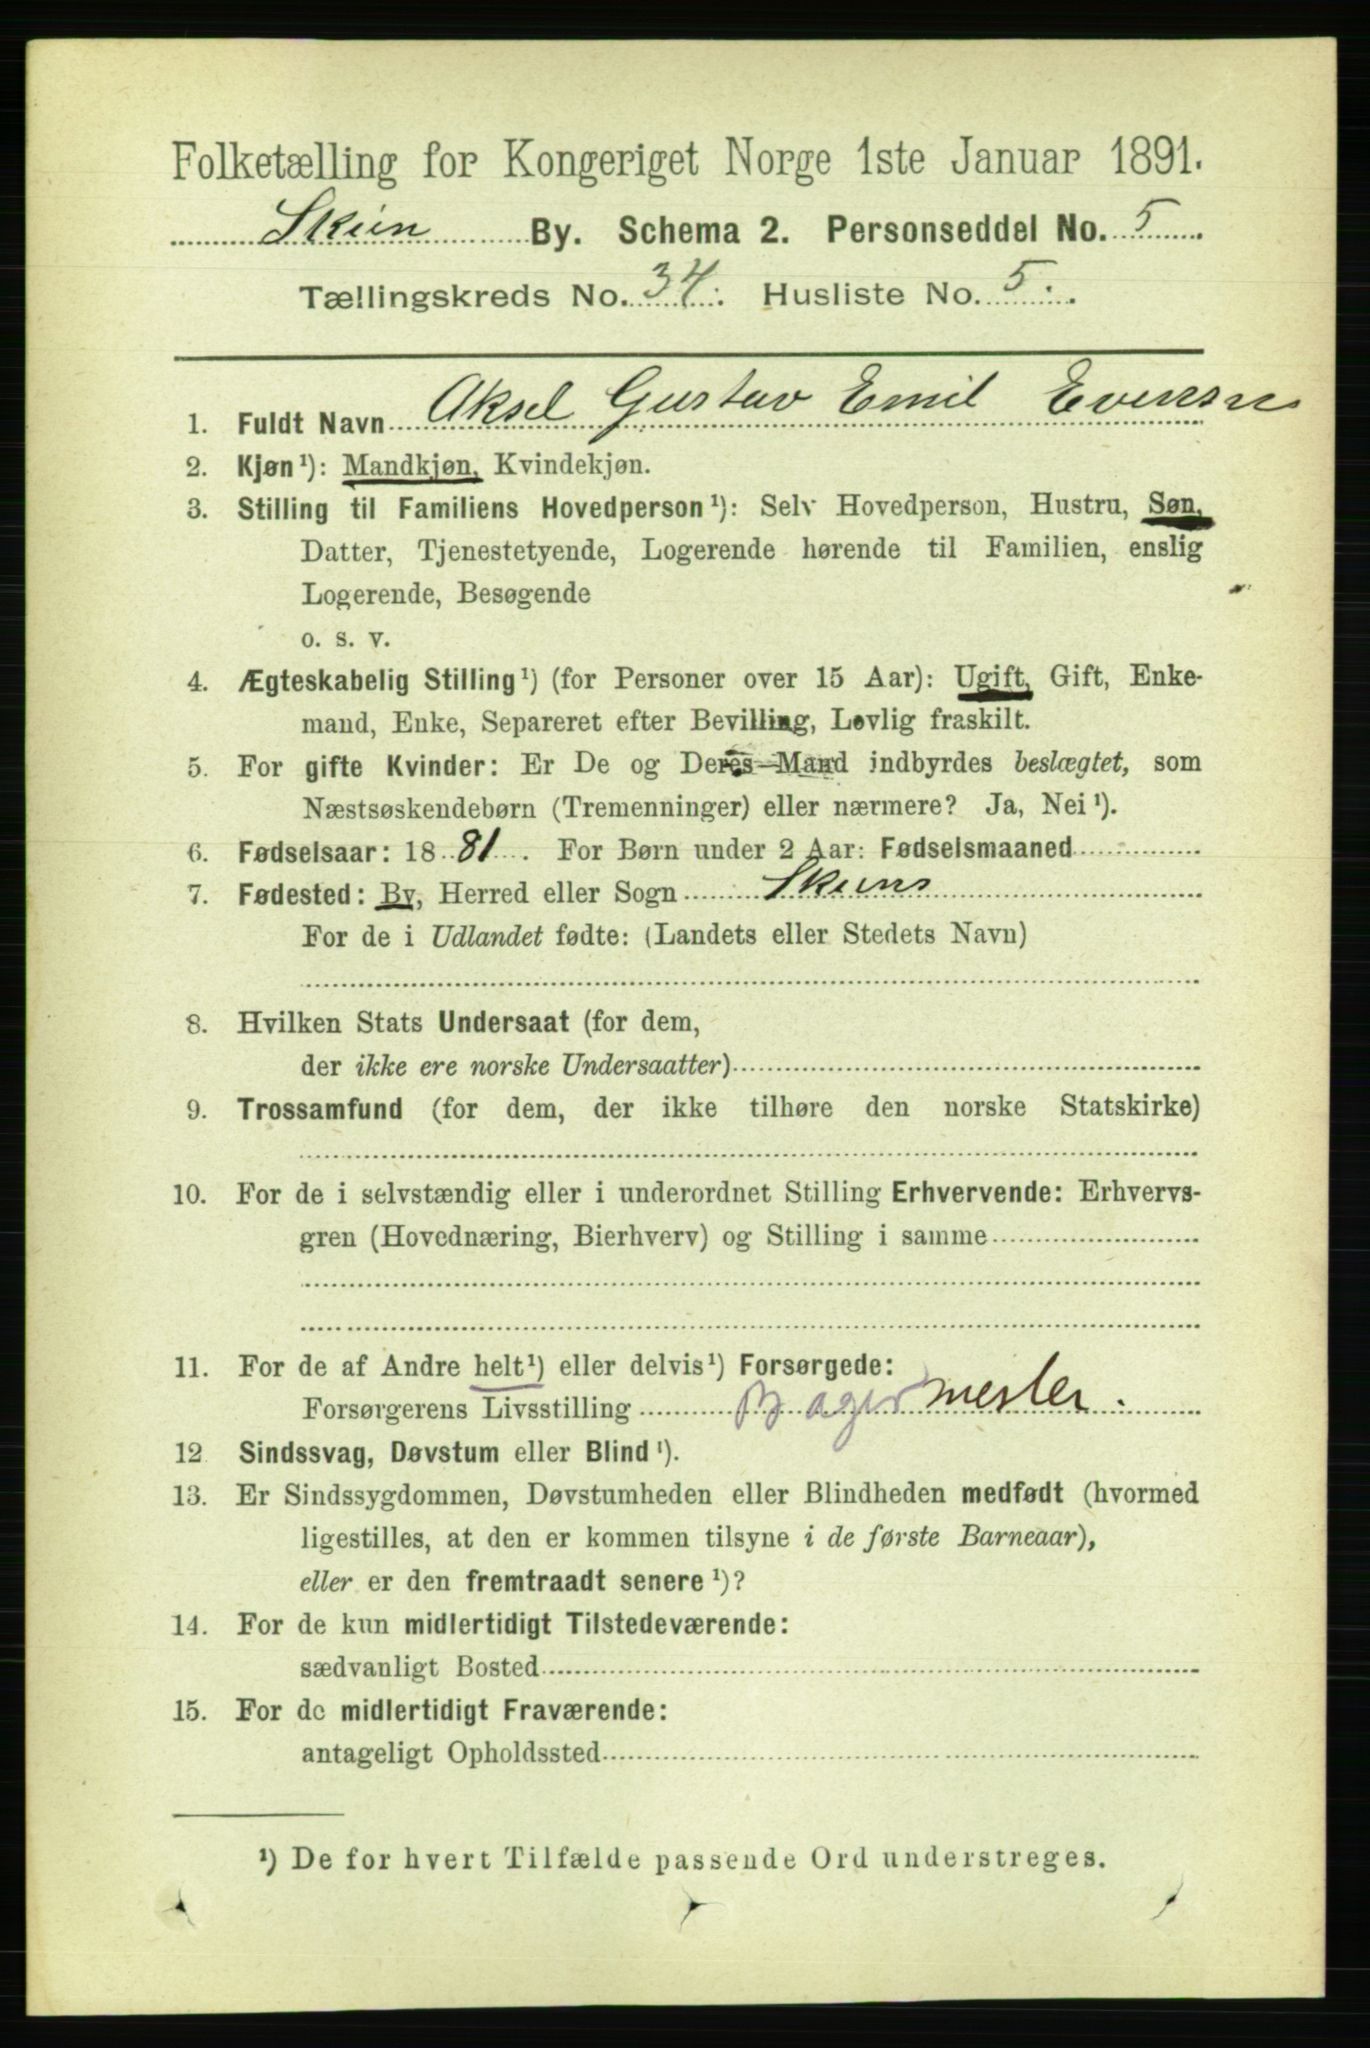 Folketælling for Kongeriget Norge 1ste Januar 1891.
Skien By. Schema 2. Personseddel No. 5
Tællingskreds No. 34. Husliste No. 5.
1. Fuldt Navn Aksel Gustav Emil Evensen
2. Kjøn¹): Mandkjøn, Kvindekjøn.
3. Stilling til Familiens Hovedperson¹): Selv Hovedperson, Hustru, Søn,
Datter, Tjenestetyende, Logerende hørende til Familien, enslig
Logerende, Besøgende
o. s. v.
4. Ægteskabelig Stilling¹) (for Personer over 15 Aar): Ugift, Gift, Enke-
mand, Enke, Separeret efter Bevilling, Lovlig fraskilt.
5. For gifte Kvinder: Er De og Deres Mand indbyrdes beslægtet, som
Næstsøskendebørn (Tremenninger) eller nærmere? Ja, Nei¹).
6. Fødselsaar: 1881. For Børn under 2 Aar: Fødselsmaaned
7. Fødested: By, Herred eller Sogn Skiens
For de i Udlandet fødte: (Landets eller Stedets Navn)
8. Hvilken Stats Undersaat (for dem,
der ikke ere norske Undersaatter)
9. Trossamfund (for dem, der ikke tilhøre den norske Statskirke)
10. For de i selvstændig eller i underordnet Stilling Erhvervende: Erhvervs-
gren (Hovednæring, Bierhverv) og Stilling i samme
11. For de af Andre helt¹) eller delvis¹) Forsørgede:
Forsørgerens Livsstilling Bagermester.
12 Sindssvag, Døvstum eller Blind¹).
13. Er Sindssygdommen, Døvstumheden eller Blindheden medfødt (hvormed
ligestilles, at den er kommen tilsyne i de første Barneaar),
eller er den fremtraadt senere¹)?
14. For de kun midlertidigt Tilstedeværende:
sædvanligt Bosted
15. For de midlertidigt Fraværende:
antageligt Opholdssted
¹) De for hvert Tilfælde passende Ord understreges.